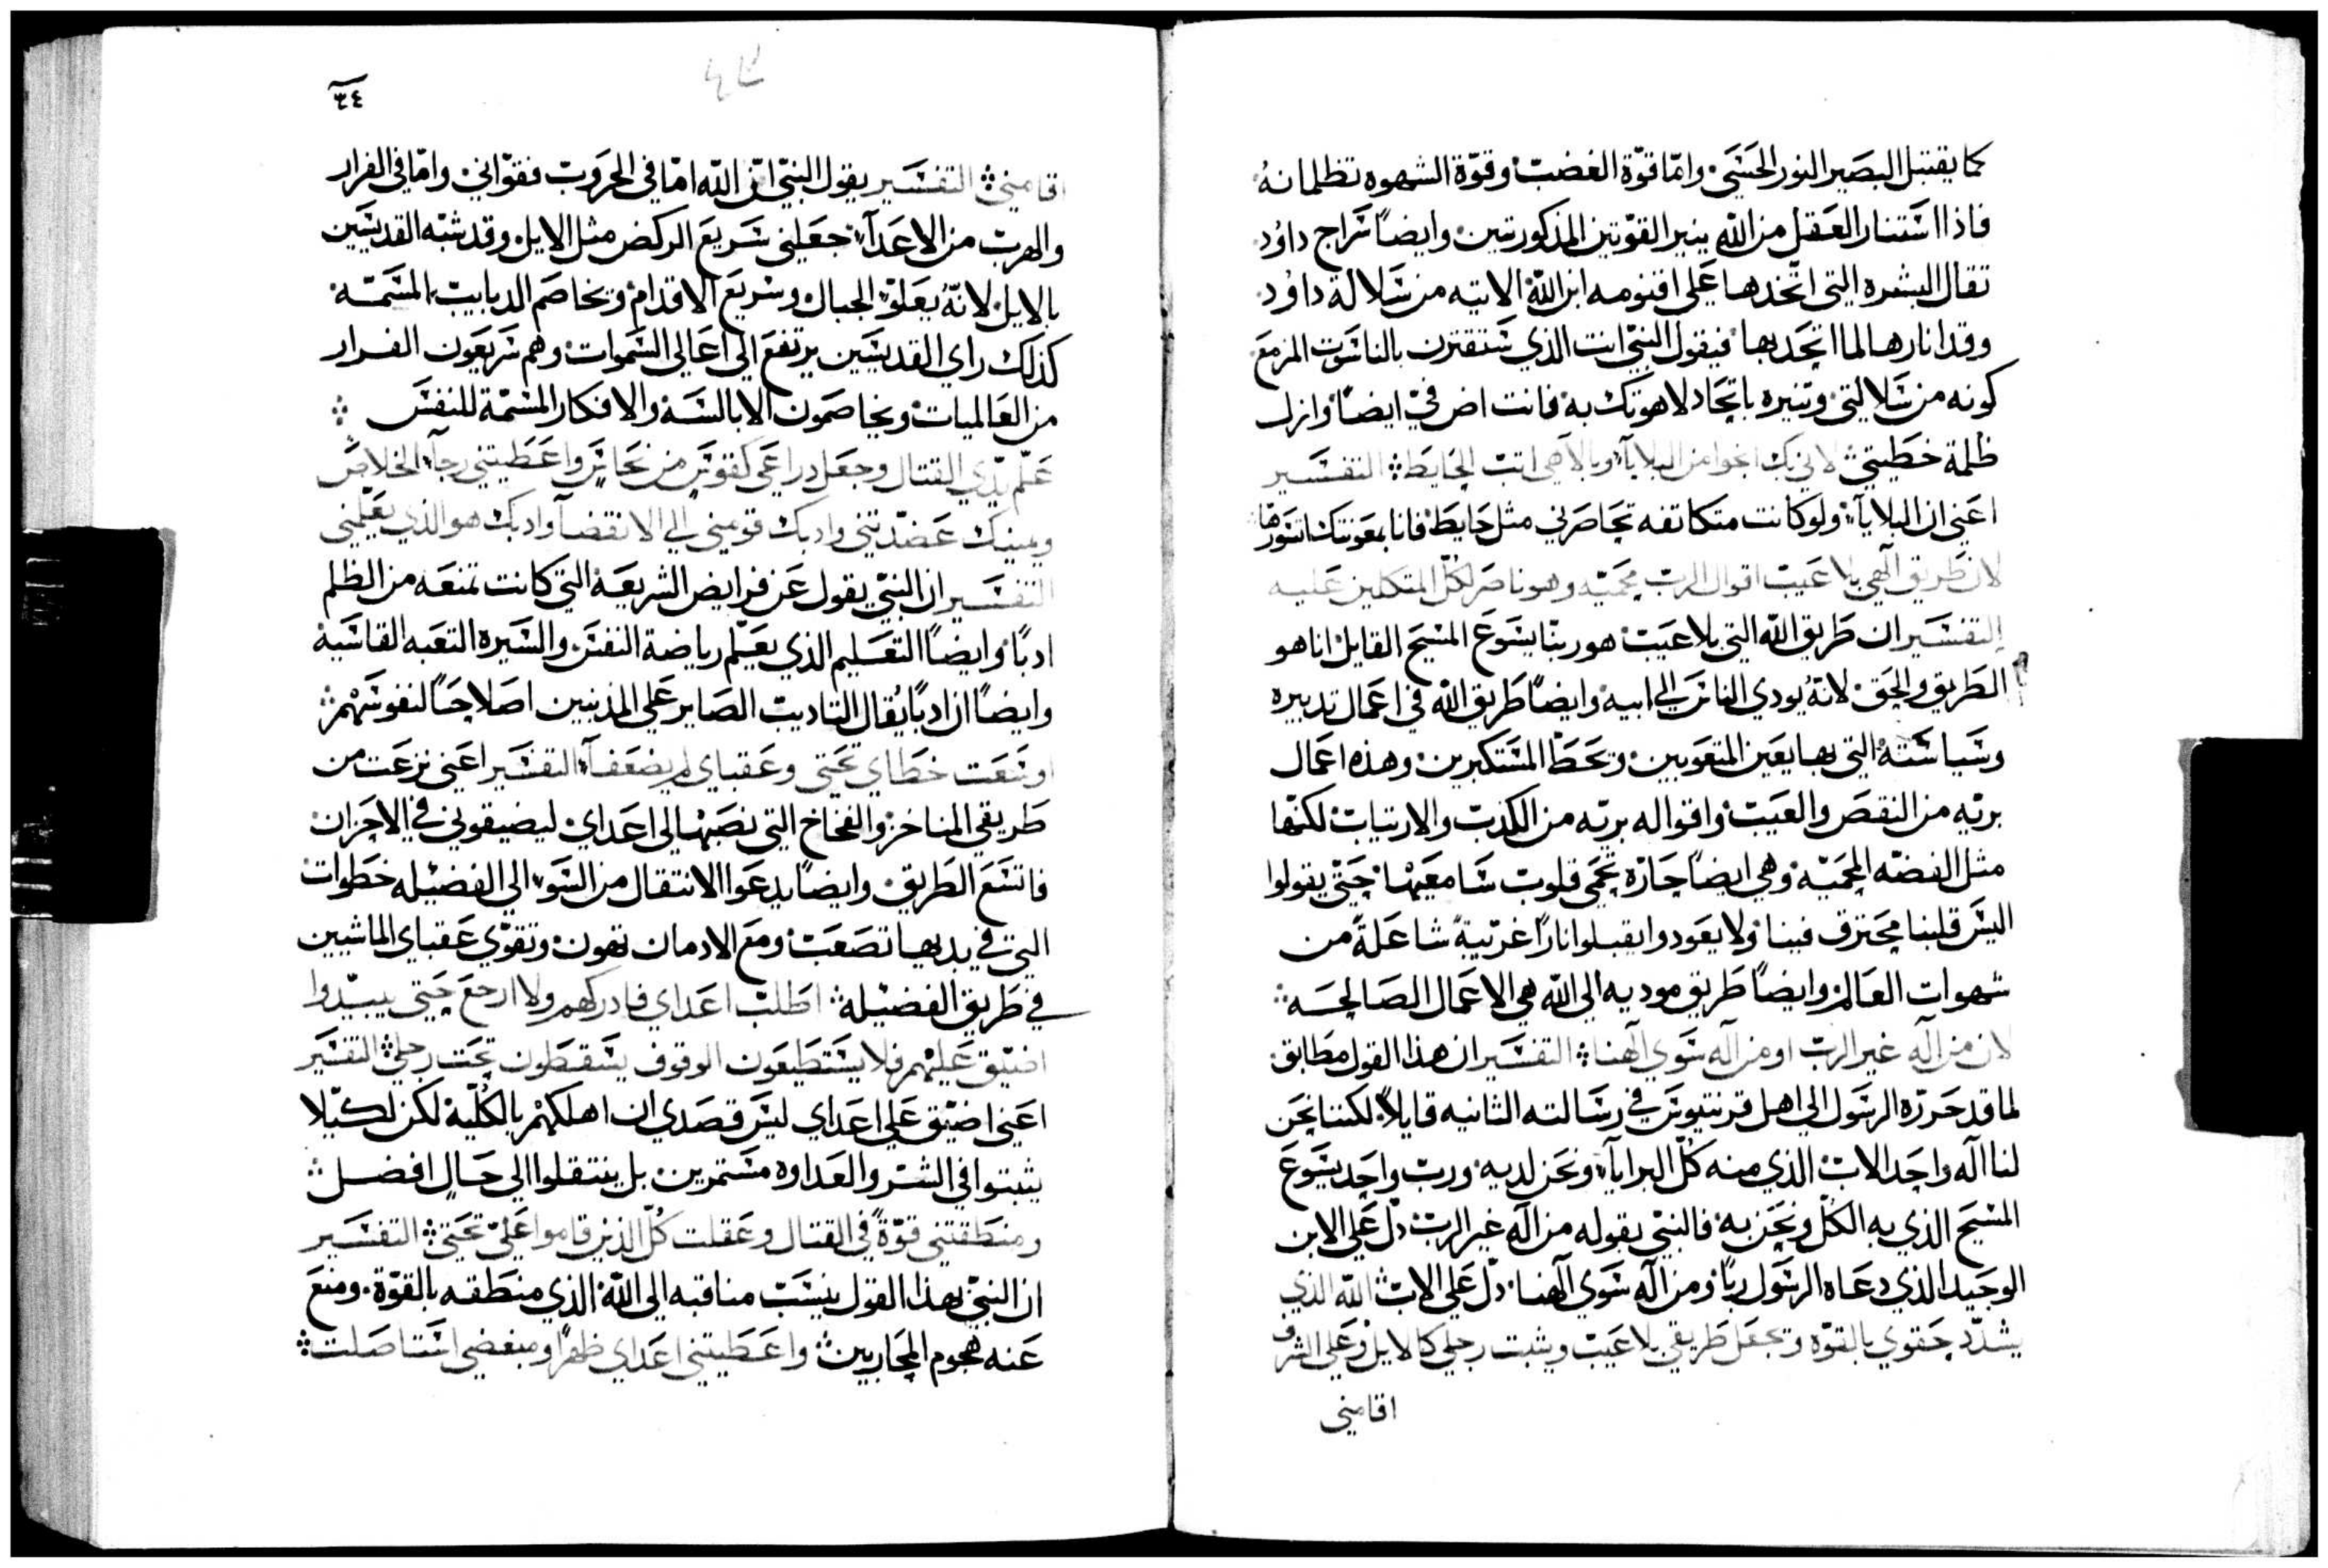 كما يقتبل البصير النور الحسّي وامّا قوّة الغضب وقوّة الشهوه تظلمانهُ
فاذا استنار العقل من الله ينير القوّتين المذكورتين وايضاً سراج داوُد
تقال البشره التي اتّخذها على اقنومه ابن اللّه الاتيه من سلالة داوُد
وقد انارها لما اتحد بها فيقول النبيّ انت الذي ستقترن بالناسوت المزمع
كونه من سلالتي وتنيره باتحاد لاهوتك به فانت اضي فيّ ايضاً وازل
ظلمة خطيتي لاني بك انجوا من البلايآء وبالاهي اتب الحايط التفسير
اعني ان البلايآء ولو كانت متكاتفه تحاصرني مثل حايط فانا بمعونتك اتسورها
لان طريق آلهي بلا عيب اقوال الرب محميّه وهو ناصر لكلّ المتكلين عليه
التفسير ان طريق اللّه التي بلا عيب هو ربّنا يسوع المسيح القايل انا هو
الطريق والحق لانهُ يودي الناس الي ابيه وايضاً طريق اللّه في اعمال تدبيره
وسياسته التي بها يعين المتعوبين وتحط المستكبرين وهذه اعمال
بريّه من النقص والعيب واقواله بريّه من الكذب والارتياب لكنّها
مثل الفضّه المحميّه وهي ايضاً حارّه تحمي قلوب سامعيها حتّى يقولوا
اليس قلبنا محترق فينا ولا يعودوا يقبلوا ناراً غريبةً شاعلةً من
شهوات العالم وايضاً طريق موديه الى اللّه هي الاعمال الصالحه
لان من آله غير الرب او من آله سوي آلهنا التفسير ان هذا القول مطابق
لما قد حرّره الرسول الى اهل قرنتيوس في رسالته الثانيه قايلاً لكننا نحن
لنا آله واحد الاب الذي منه كلّ البرايآء ونحن لديه ورب واحد يسوع
المسيح الذي به الكلّ ونحن به فالنبيّ بقوله من آله غير الرب دلّ على الابن
الوحيد الذي دعاه الرسول ربّاً ومن آله سوى آلهنا دلّ على الاب اللّه الذي
يشدّد حقوي بالقوّه وتجعل طريقي بلا عيب ويثبت رجلي كالايل وعلى الشرف
اقامني
٣٤
اقامني التفسير يقول النبيّ انّ اللّه امّا في الحروب فقوّاني وامّا في الفرار
والهرب من الاعدآء جعلني سريع الركض مثل الايل وقد شبّه القديسين
بالايل لانهُ يعلو الجبال وسريع الاقدام وتخاصم الدبابيب المسمّه
كذلك راي القديسين يرتفع الي اعالي السموات وهم سريعون الفرار
من العالميات ويخاصمون الابالسه والافكار المسمّة للنفس
علّم يدّي القتال وجعل دراعي كقوس من نحاس واعطيتني رجآء الخلاص
ويمينك عضّدتني وادبك قومني الي الانقضآ وادبك هو الذي يعلّمني
التفسير ان النبيّ يقول عن فرايض الشريعة التي كانت تمنعه من الظلم
ادباً وايضاً التعليم الذي يعلّم رياضة النفس والسيره التعبه القاسية
وايضاً ان ادباً يُقال التاديب الصاير على المذنبين اصلاحاً لنفوسهم
اوسعت خطاي تحتي وعقباي لم يضعفآ التفسير اعني نزعت من
طريقي المناخز والفخاخ التي نصبها لي اعداي ليضيقوني في الاحزان
فاتسع الطريق وايضاً يدعوا الانتقال من السوء الى الفضيله خطوات
التي في بديها تصعب ومع الادمان تهون وتقوّي عقباي الماشيين
في طريق الفضيله اطلب اعداي فادركهم ولا ارجع حتي يبيّدوا
اضيّق عليهم فلا يستطيعون الوقوف يسقطون تحت رجليّ التفسير
اعني اضيّق على اعداي ليس قصدي ان اهلكهم بالكُلّية لكن لكيّلا
يثبتوا في الشر والعداوه مستمرين بل ينتقلوا الى حالٍ افضل
ومنطقتني قوّةً في القتال وعقلت كُلّ الذين قاموا عليّ تحتي التفسير
ان النبيّ بهذا القول ينسب مناقبه الى اللّه الذي منطقه بالقوّة ومنع
عنه هجوم المحاربين واعطيتني اعداي ظهراً ومبغضي استاصلت